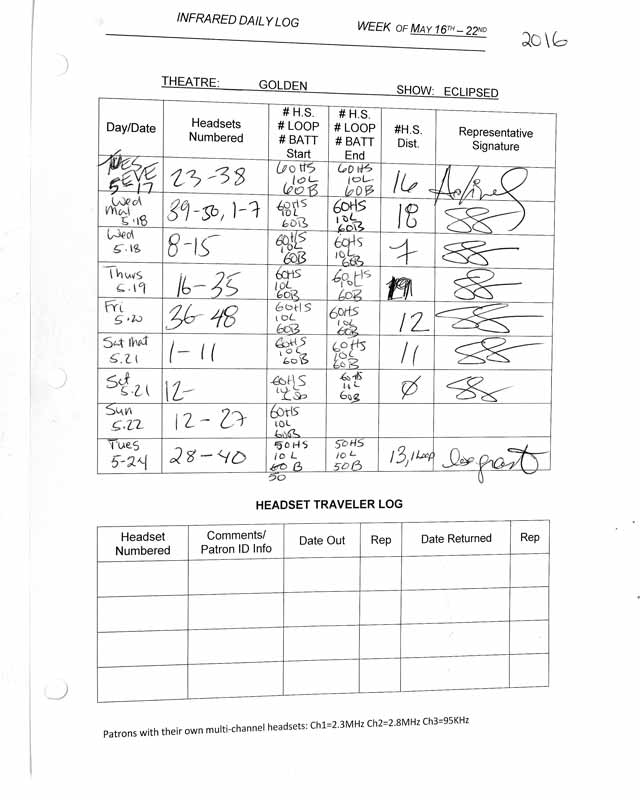 INFRARED DAILY LOG WEEK OF MAY 16TH – 22ND
2016
THEATRE: GOLDEN SHOW: ECLIPSED
Day/Date Headsets Numbered # H.S. # LOOP # BATT Start # H.S. # LOOP # BATT End #H.S. Dist. Representative Signature
TUES EVE 5-17 23-38 60HS 10L 60B 60HS 10L 60B 16
Wed Mat 5.18 39-50, 1-7 60HS 10L 60B 60HS 10L 60B 18
Wed 5.18 8-15 60HS 10L 60B 60HS 10L 60B 7
Thurs 5.19 16-35 60HS 10L 60B 60HS 10L 60B 19
Fri 5.20 36-48 60HS 10L 60B 60HS 10L 60B 12
Sat Mat 5.21 1-11 60HS 10L 60B 60HS 10L 60B 11
Sat 5.21 12- 60HS 60HS 60B 0
Sun 5.22 12-27 60HS 10L 60B
Tues 5-24 28-40 50HS 10L 60 B 50 50HS 10L 50B 13, 1 Loop
HEADSET TRAVELER LOG
Headset Numbered Comments/ Patron ID Info Date Out Rep Date Returned Rep
Patrons with their own multi-channel headsets: Ch1=2.3MHz Ch2=2.8MHz Ch3=95KHz